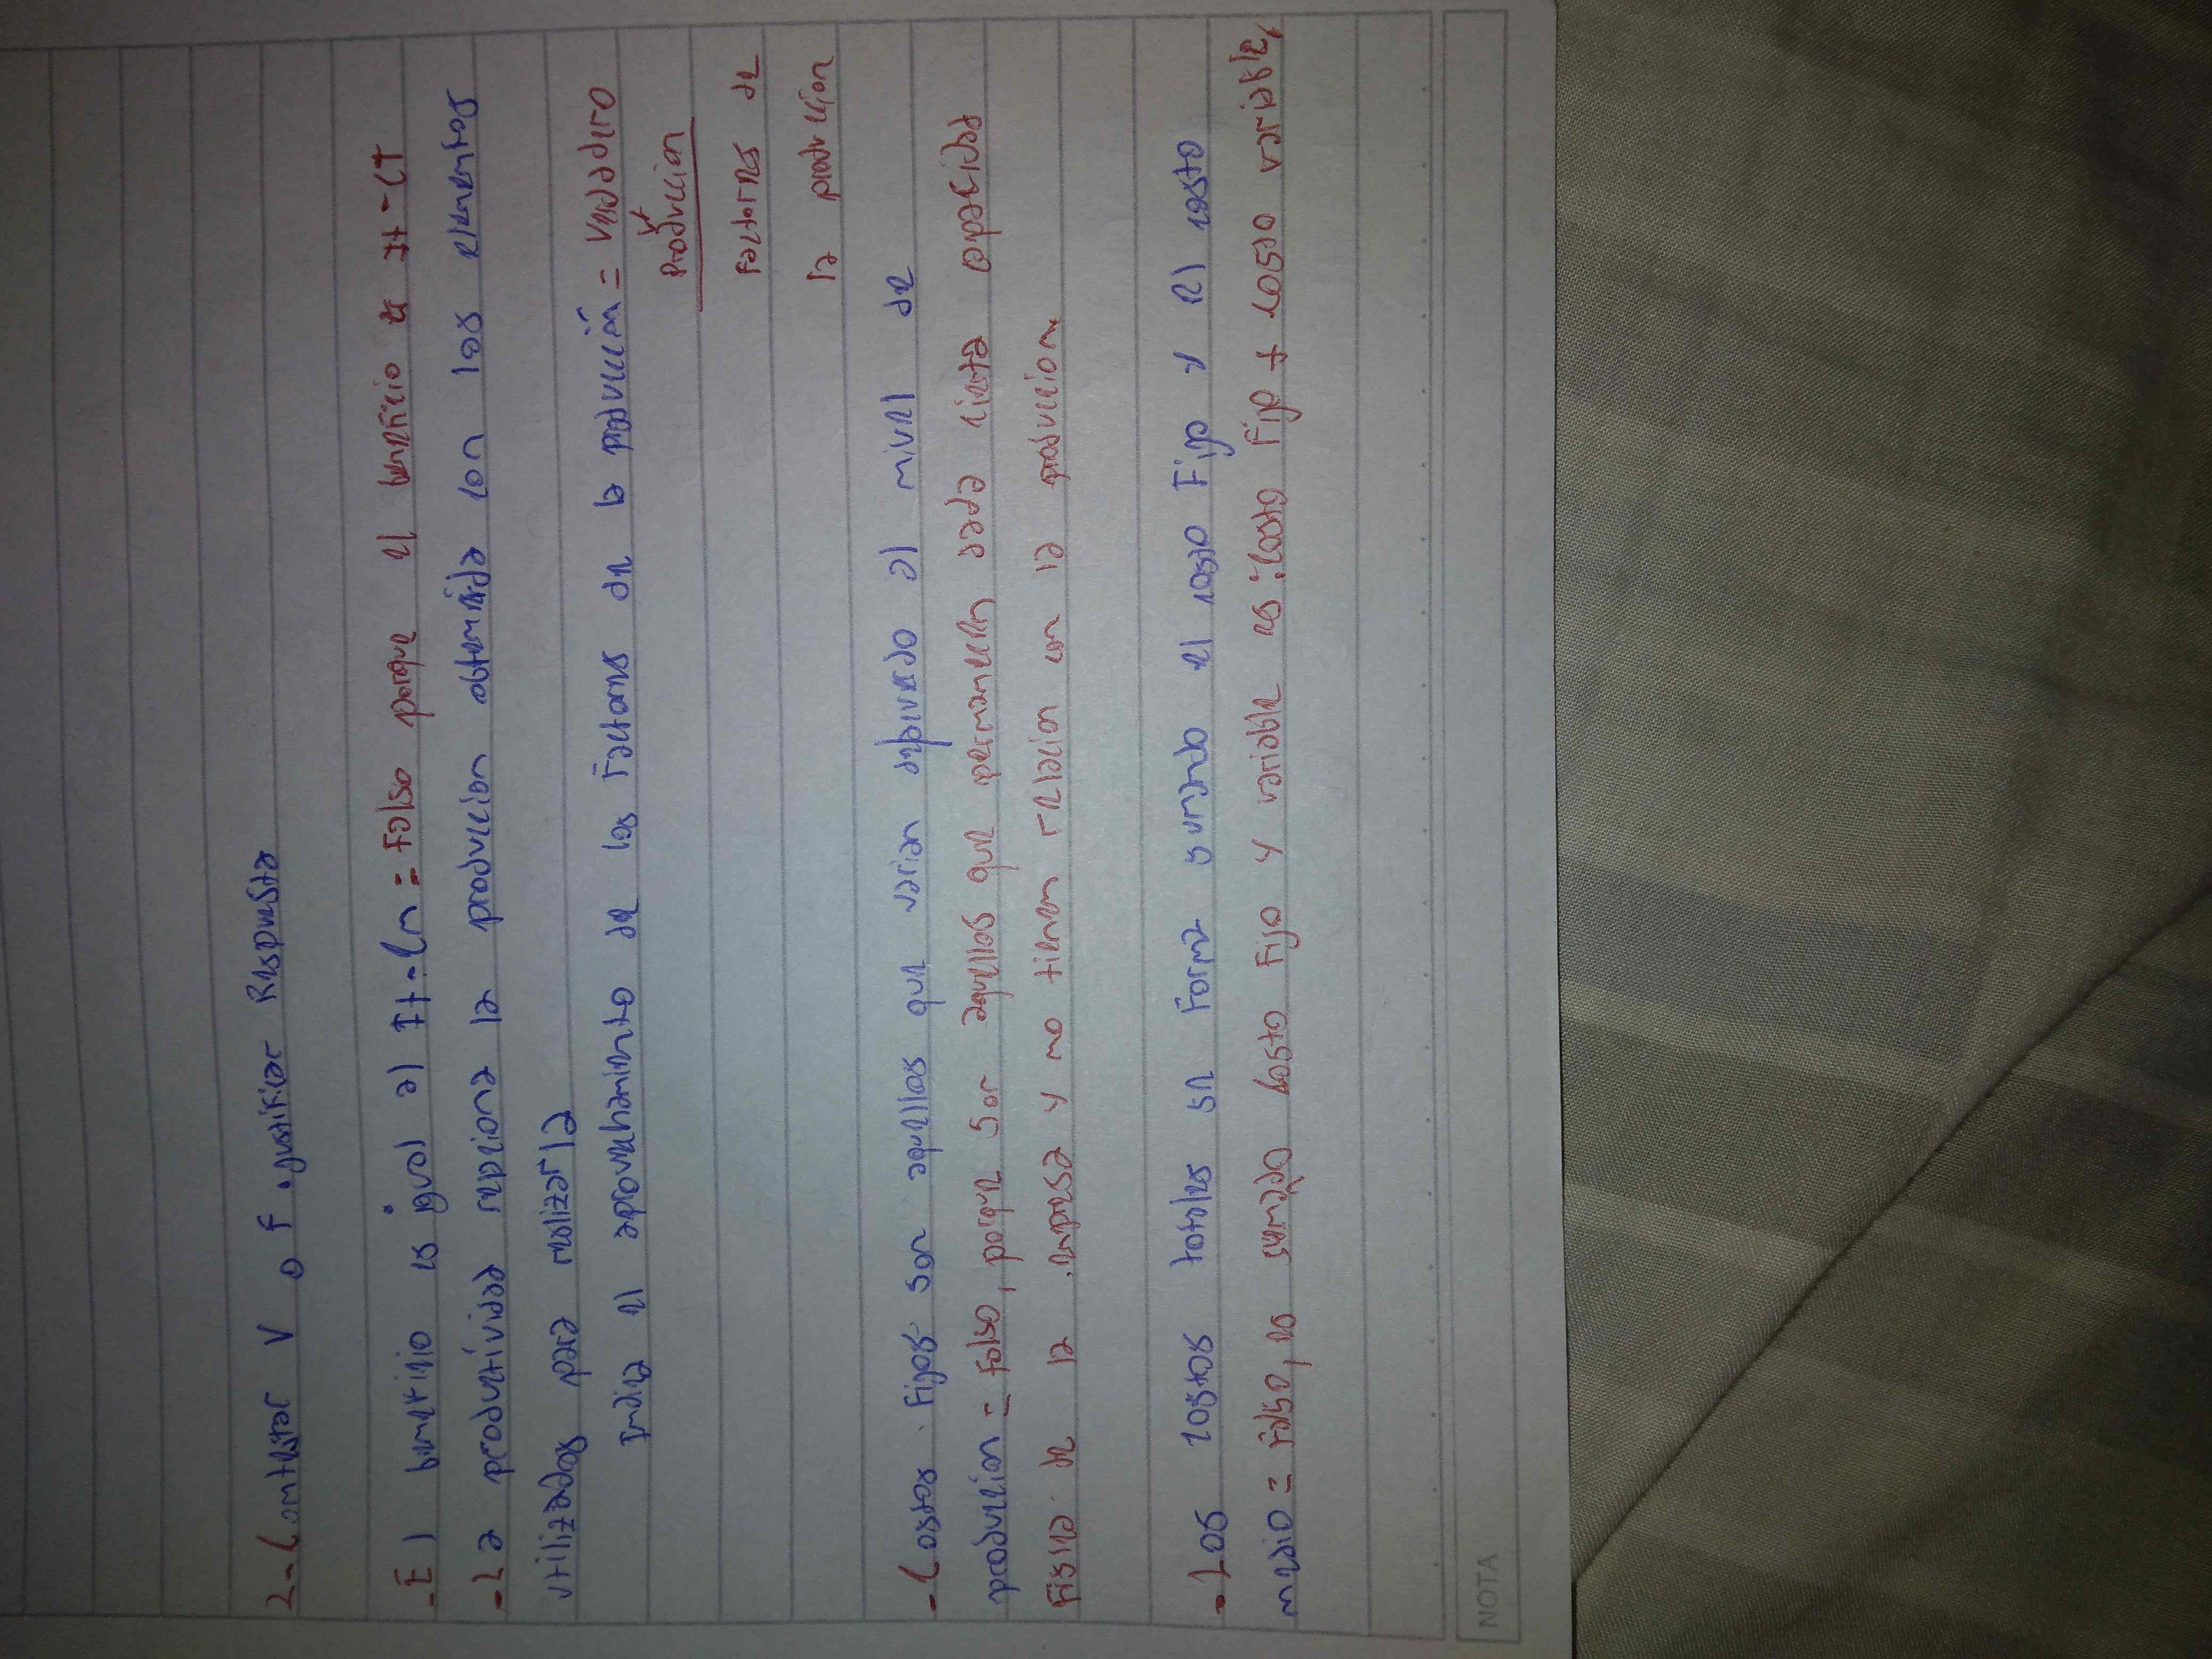 2-Contestar V o F .justificar Respuesta
-El beneficio es igual al It-Cm = Falso porque el beneficio es It-CT
-La productividad repciona la produccion obtenida con los elementos
utilizados para realizarla
Indica el aprovechamiento de los Factores de la producción = Verdadero
Producción
Factores de
la producción
-Costos Fijos son aquellos que varian depiuedo al nivel de
produccion = Falso, porque son aquellos que permanecen dada cierta capacidad
Fisica de la empresa y no tienen relacion con la produccion.
-Los costos totales se Forma sumando el costo Fijo y el costo
medio = Falso, es sumado costo Fijo y variable es: Costo Fijo + costo variable
NOTA